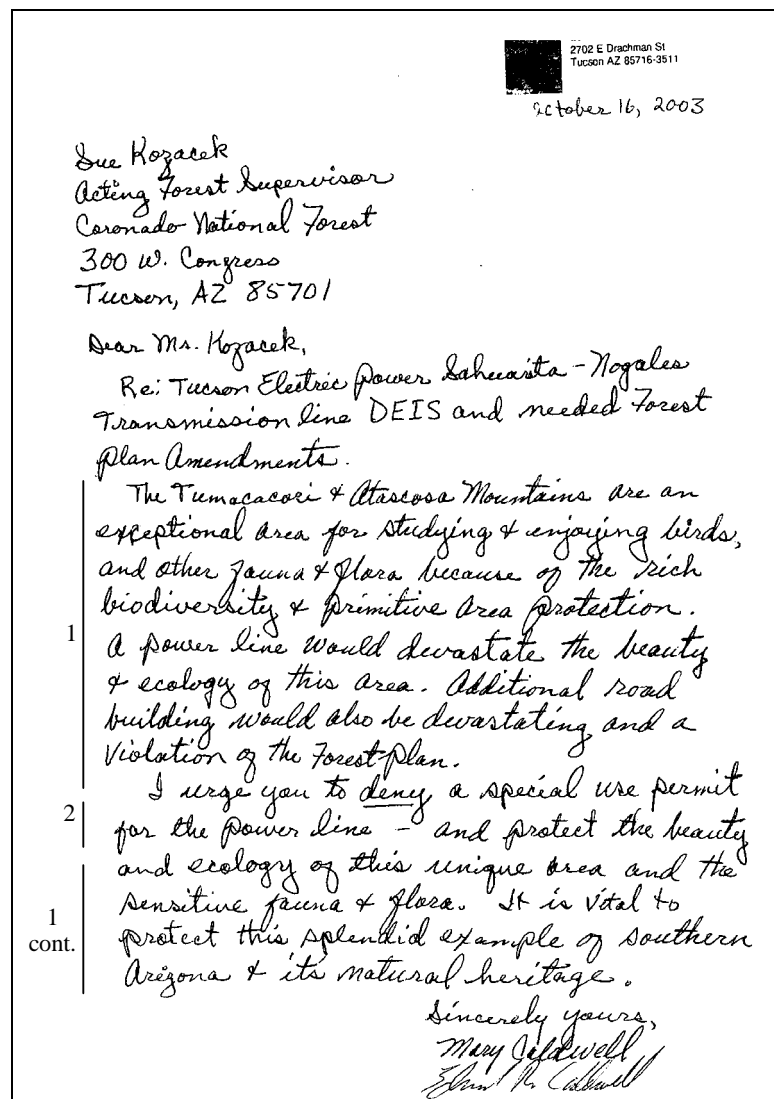 2702 E Drachman St
Tucson AZ 85716-3511
October 16, 2003
Sue Kozacek
Acting Forest Supervisor
Coronado National Forest
300 W. Congress
Tucson, AZ 85701
Dear Ms. Kozacek,
Re: Tucson Electric Power Sahuarita - Nogales
Transmission line DEIS and needed Forest
Plan Amendments.
The Tumacacori & Atascosa Mountains are an
exceptional area for studying & enjoying birds,
and other fauna & flora because of the rich
biodiversity & primitive area protection.
1
A power line would devastate the beauty
& ecology of this area. Additional road
building would also be devastating and a
violation of the Forest Plan.
I urge you to deny a special use permit
2
for the power line - and protect the beauty
and ecology of this unique area and the
sensitive fauna & flora. It is vital to
1
cont.
protect this splendid example of southern
Arizona & its natural heritage.
Sincerely yours,
Mary Caldwell
Caldwell